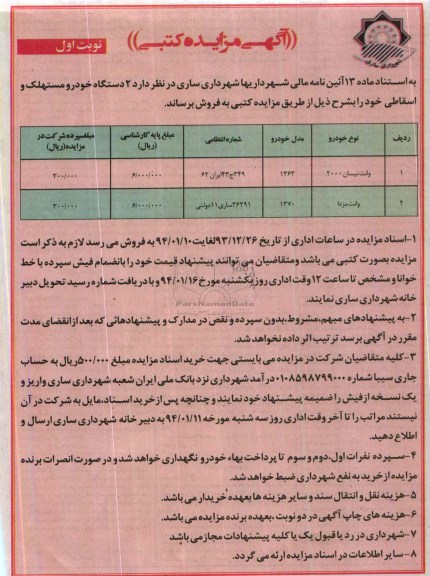 ((آگهی مزایده کتبی))
نوبت اول
شهرداری ساری
به استناد ماده ۱۳ آئین نامه مالی شهرداریها شهرداری ساری در نظر دارد ۲ دستگاه خودرو مستهلک و
اسقاطی خود را بشرح ذیل از طریق مزایده کتبی به فروش برساند.
ردیف نوع خودرو مدل خودرو شماره انتظامی مبلغ پایه کارشناسی (ریال) مبلغ سپرده شرکت در مزایده (ریال)
۱ وانت نیسان ۲۰۰۰ ۱۳۶۳ ۳۴۹ج۴۳ایران ۶۲ ۶/۰۰۰/۰۰۰ ۳۰۰/۰۰۰
۲ وانت مزدا ۱۳۷۰ ۳۶۲۹۱ساری ۱۱ دولتی ۶/۰۰۰/۰۰۰ ۳۰۰/۰۰۰
۱-اسناد مزایده در ساعات اداری از تاریخ ۹۳/۱۲/۲۶ لغایت ۹۴/۰۱/۱۰ به فروش می رسد لازم به ذکر است
مزایده بصورت کتبی می باشد و متقاضیان می توانند پیشنهاد قیمت خود را بانضمام فیش سپرده با خط
خوانا و مشخص تا ساعت ۱۲ وقت اداری روز یکشنبه مورخ ۹۴/۰۱/۱۶ و با دریافت شماره رسید تحویل دبیر
خانه شهرداری ساری نمایند.
ParsNamadData
۲-به پیشنهادهای مبهم،مشروط،بدون سپرده و نقص در مدارک و پیشنهادهائی که بعد از انقضای مدت
مقرر در آگهی برسد ترتیب اثر داده نخواهد شد.
۳-کلیه متقاضیان شرکت در مزایده می بایستی جهت خرید اسناد مزایده مبلغ ۵۰۰/۰۰۰ریال به حساب
جاری سیبا شماره ۰۱۰۸۵۹۸۷۹۹۰۰۰ درآمد شهرداری نزد بانک ملی ایران شعبه شهرداری ساری واریز و
یک نسخه از فیش را ضمیمه پیشنهاد خود نمایند و چنانچه پس از خرید اسناد،مایل به شرکت در آن
نیستند مراتب را تا آخر وقت اداری روز سه شنبه مورخه ۹۴/۰۱/۱۱ به دبیر خانه شهرداری ساری ارسال و
اطلاع دهید.
۴-سپرده نفرات اول،دوم و سوم تا پرداخت بهاء خودرو نگهداری خواهد شد و در صورت انصرات برنده
مزایده از خرید به نفع شهرداری ضبط خواهد شد.
۵-هزینه نقل و انتقال سند و سایر هزینه ها بعهده خریدار می باشد.
۶-هزینه های چاپ آگهی در دو نوبت ،بعهده برنده مزایده می باشد.
۷-شهرداری در رد یا قبول یک یا کلیه پیشنهادات مجاز می باشد
۸-سایر اطلاعات در اسناد مزایده ارئه می گردد.